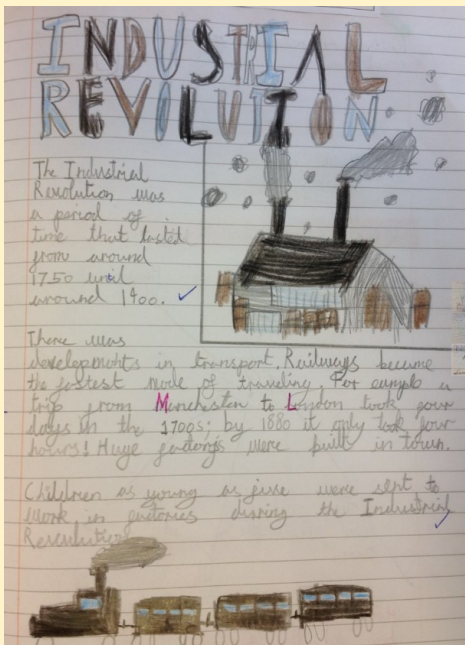 INDUSTRIAL
REVILUITON
The Industrial
Revolution was
a period of
time that lasted
from around
1750 until
around 1900.
There was
developments in transport. Railways became
the fastest mode of traveling. For eample a
trip from Manchester to London took four
days in the 1700s; by 1880 it only took four
hours! Huge factorys were built in town.
Children as young as five were sent to
work in factories during the Industrial
Revolution